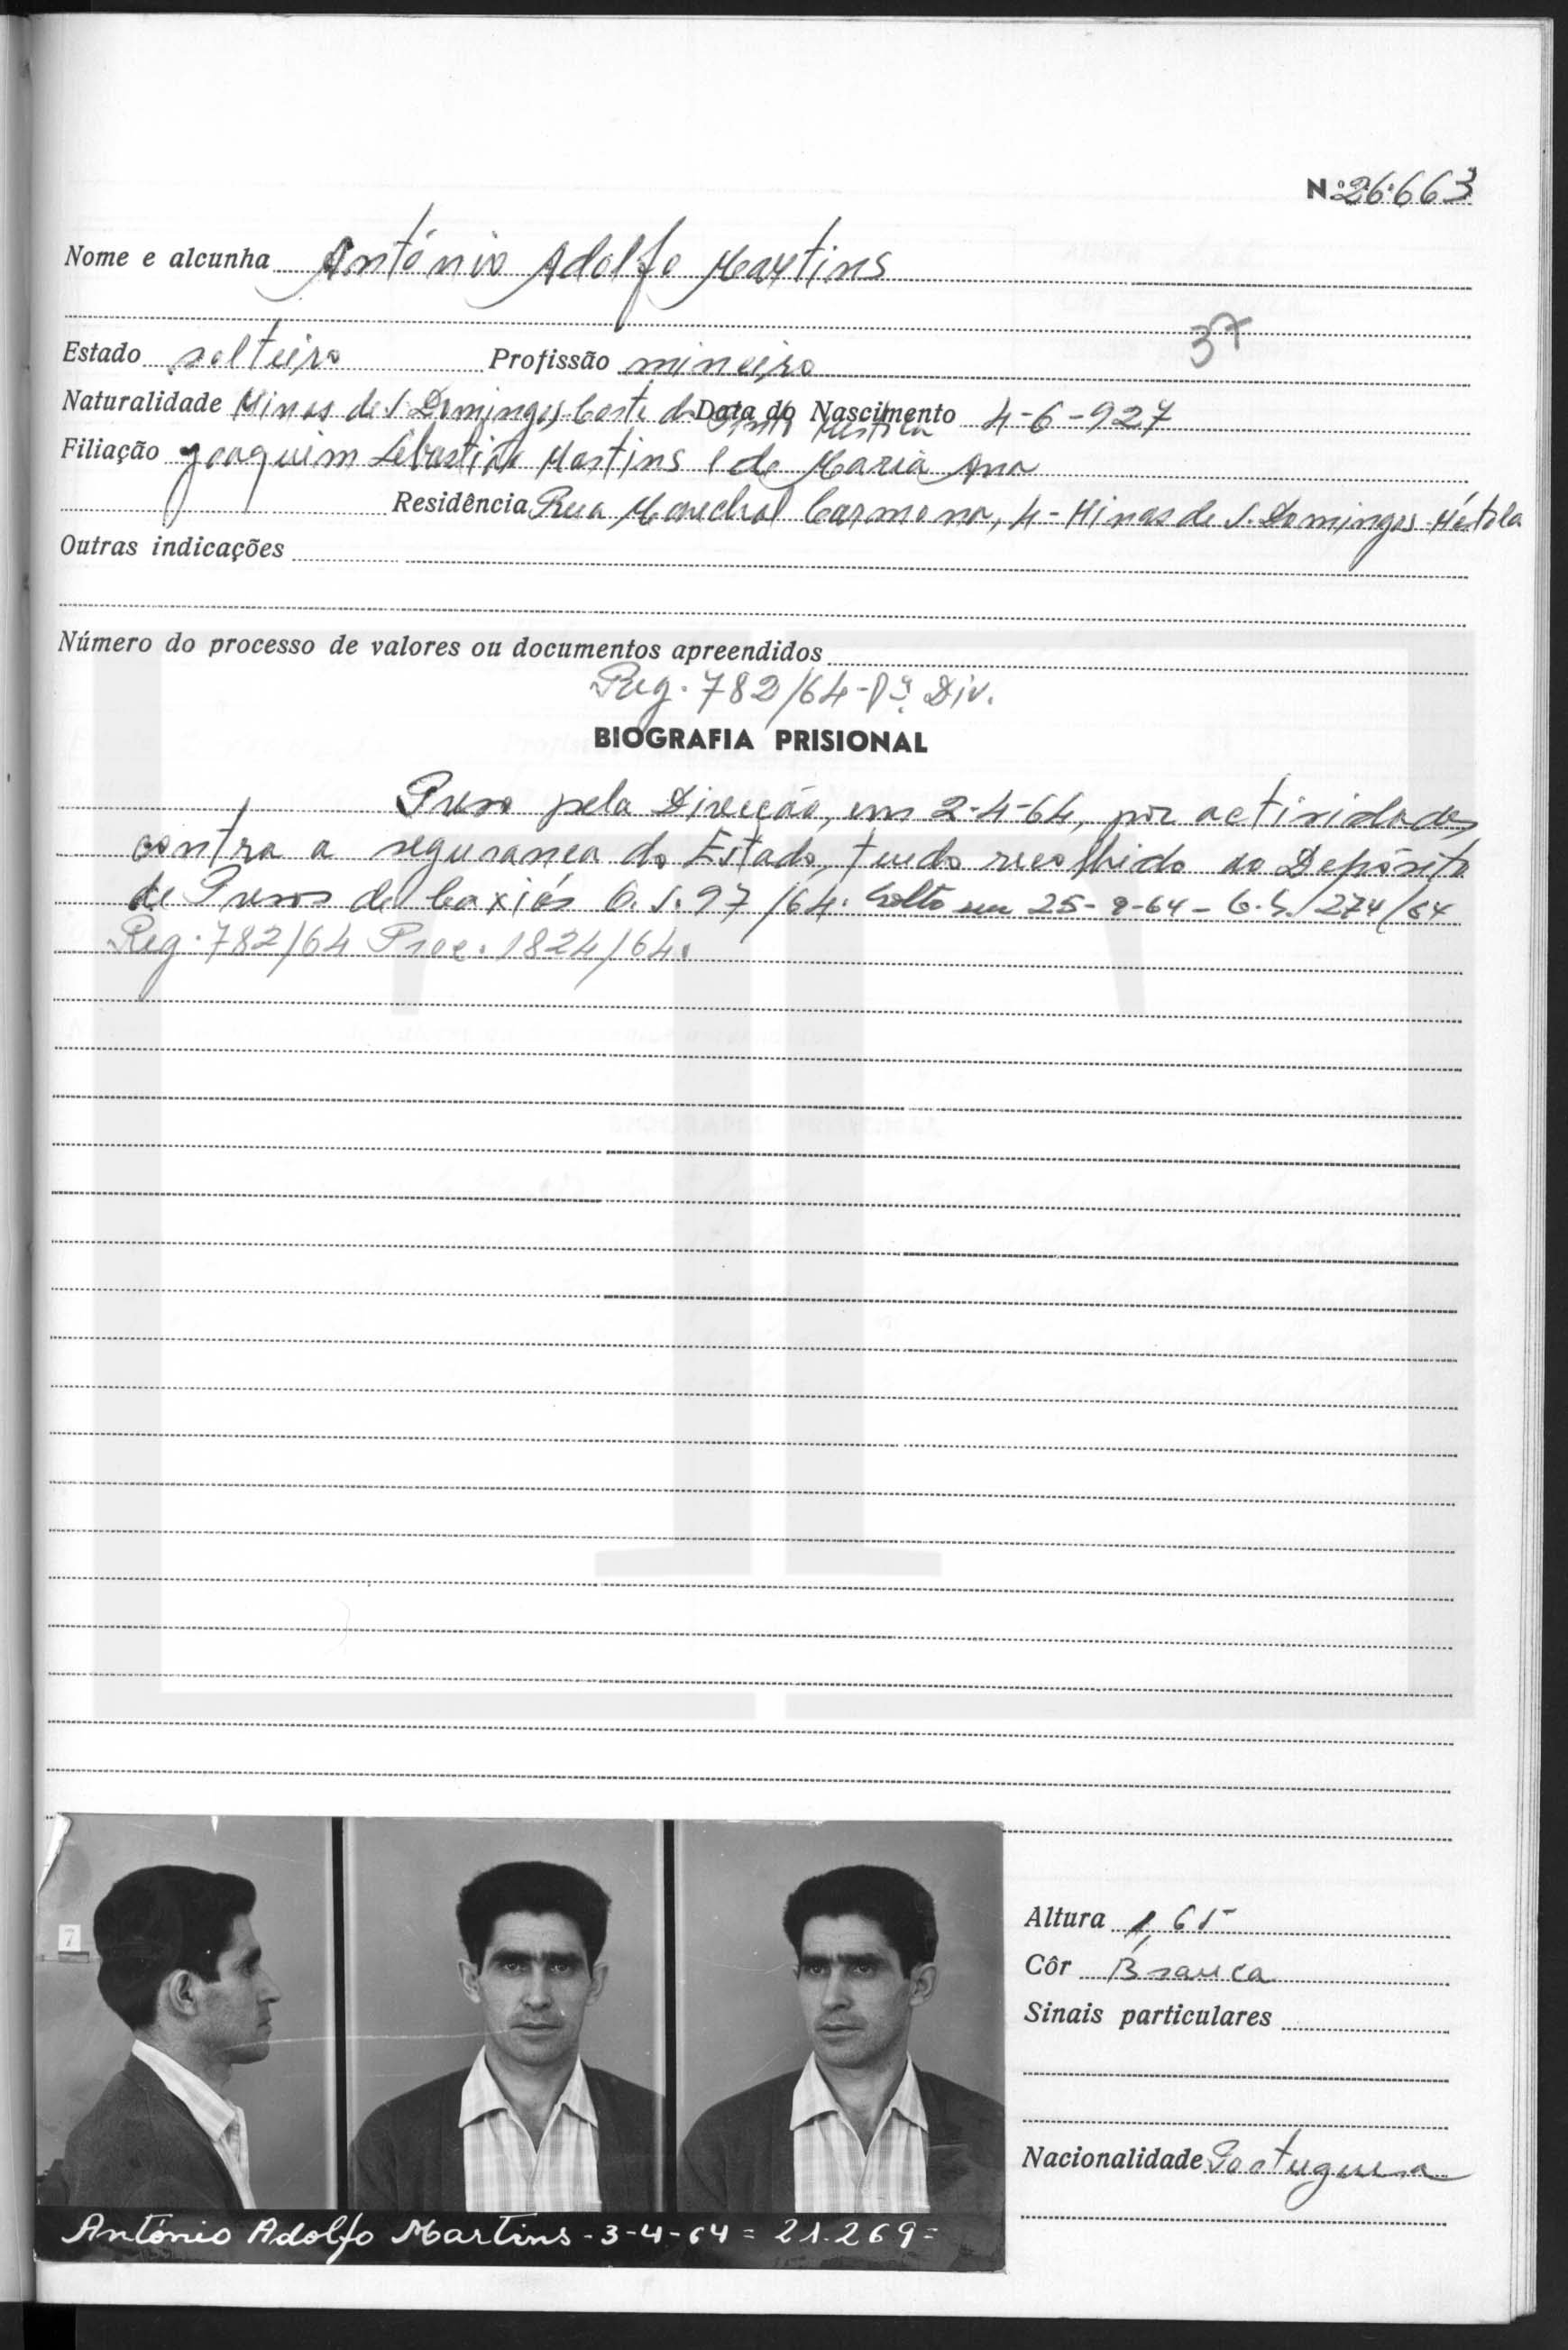 Nº 26.663
Nome e alcunha António Adolfo Martins
37
Estado solteiro Profissão mineiro
Naturalidade Minas de S. Domingos Corte do Pinto Mértola Data do Nascimento 4-6-927
Filiação Joaquim Sebastião Martins e de Maria Ana
Residência Rua Marechal Carmona, 4 - Minas de S. Domingos - Mértola
Outras indicações
Número do processo de valores ou documentos apreendidos
Reg. 782/64-1ª Div.
BIOGRAFIA PRISIONAL
Preso pela Direcção, em 2-4-64, por actividades
contra a segurança do Estado, tendo recolhido ao Depósito
de Presos de Caxias O.S. 97/64. Solto em 25-9-64 - O.S. 274/64
Reg. 782/64 Proc. 1824/64.
7
Altura 1,65
Côr Branca
Sinais particulares
Nacionalidade Portuguesa
António Adolfo Martins - 3-4-64 = 21.269 =